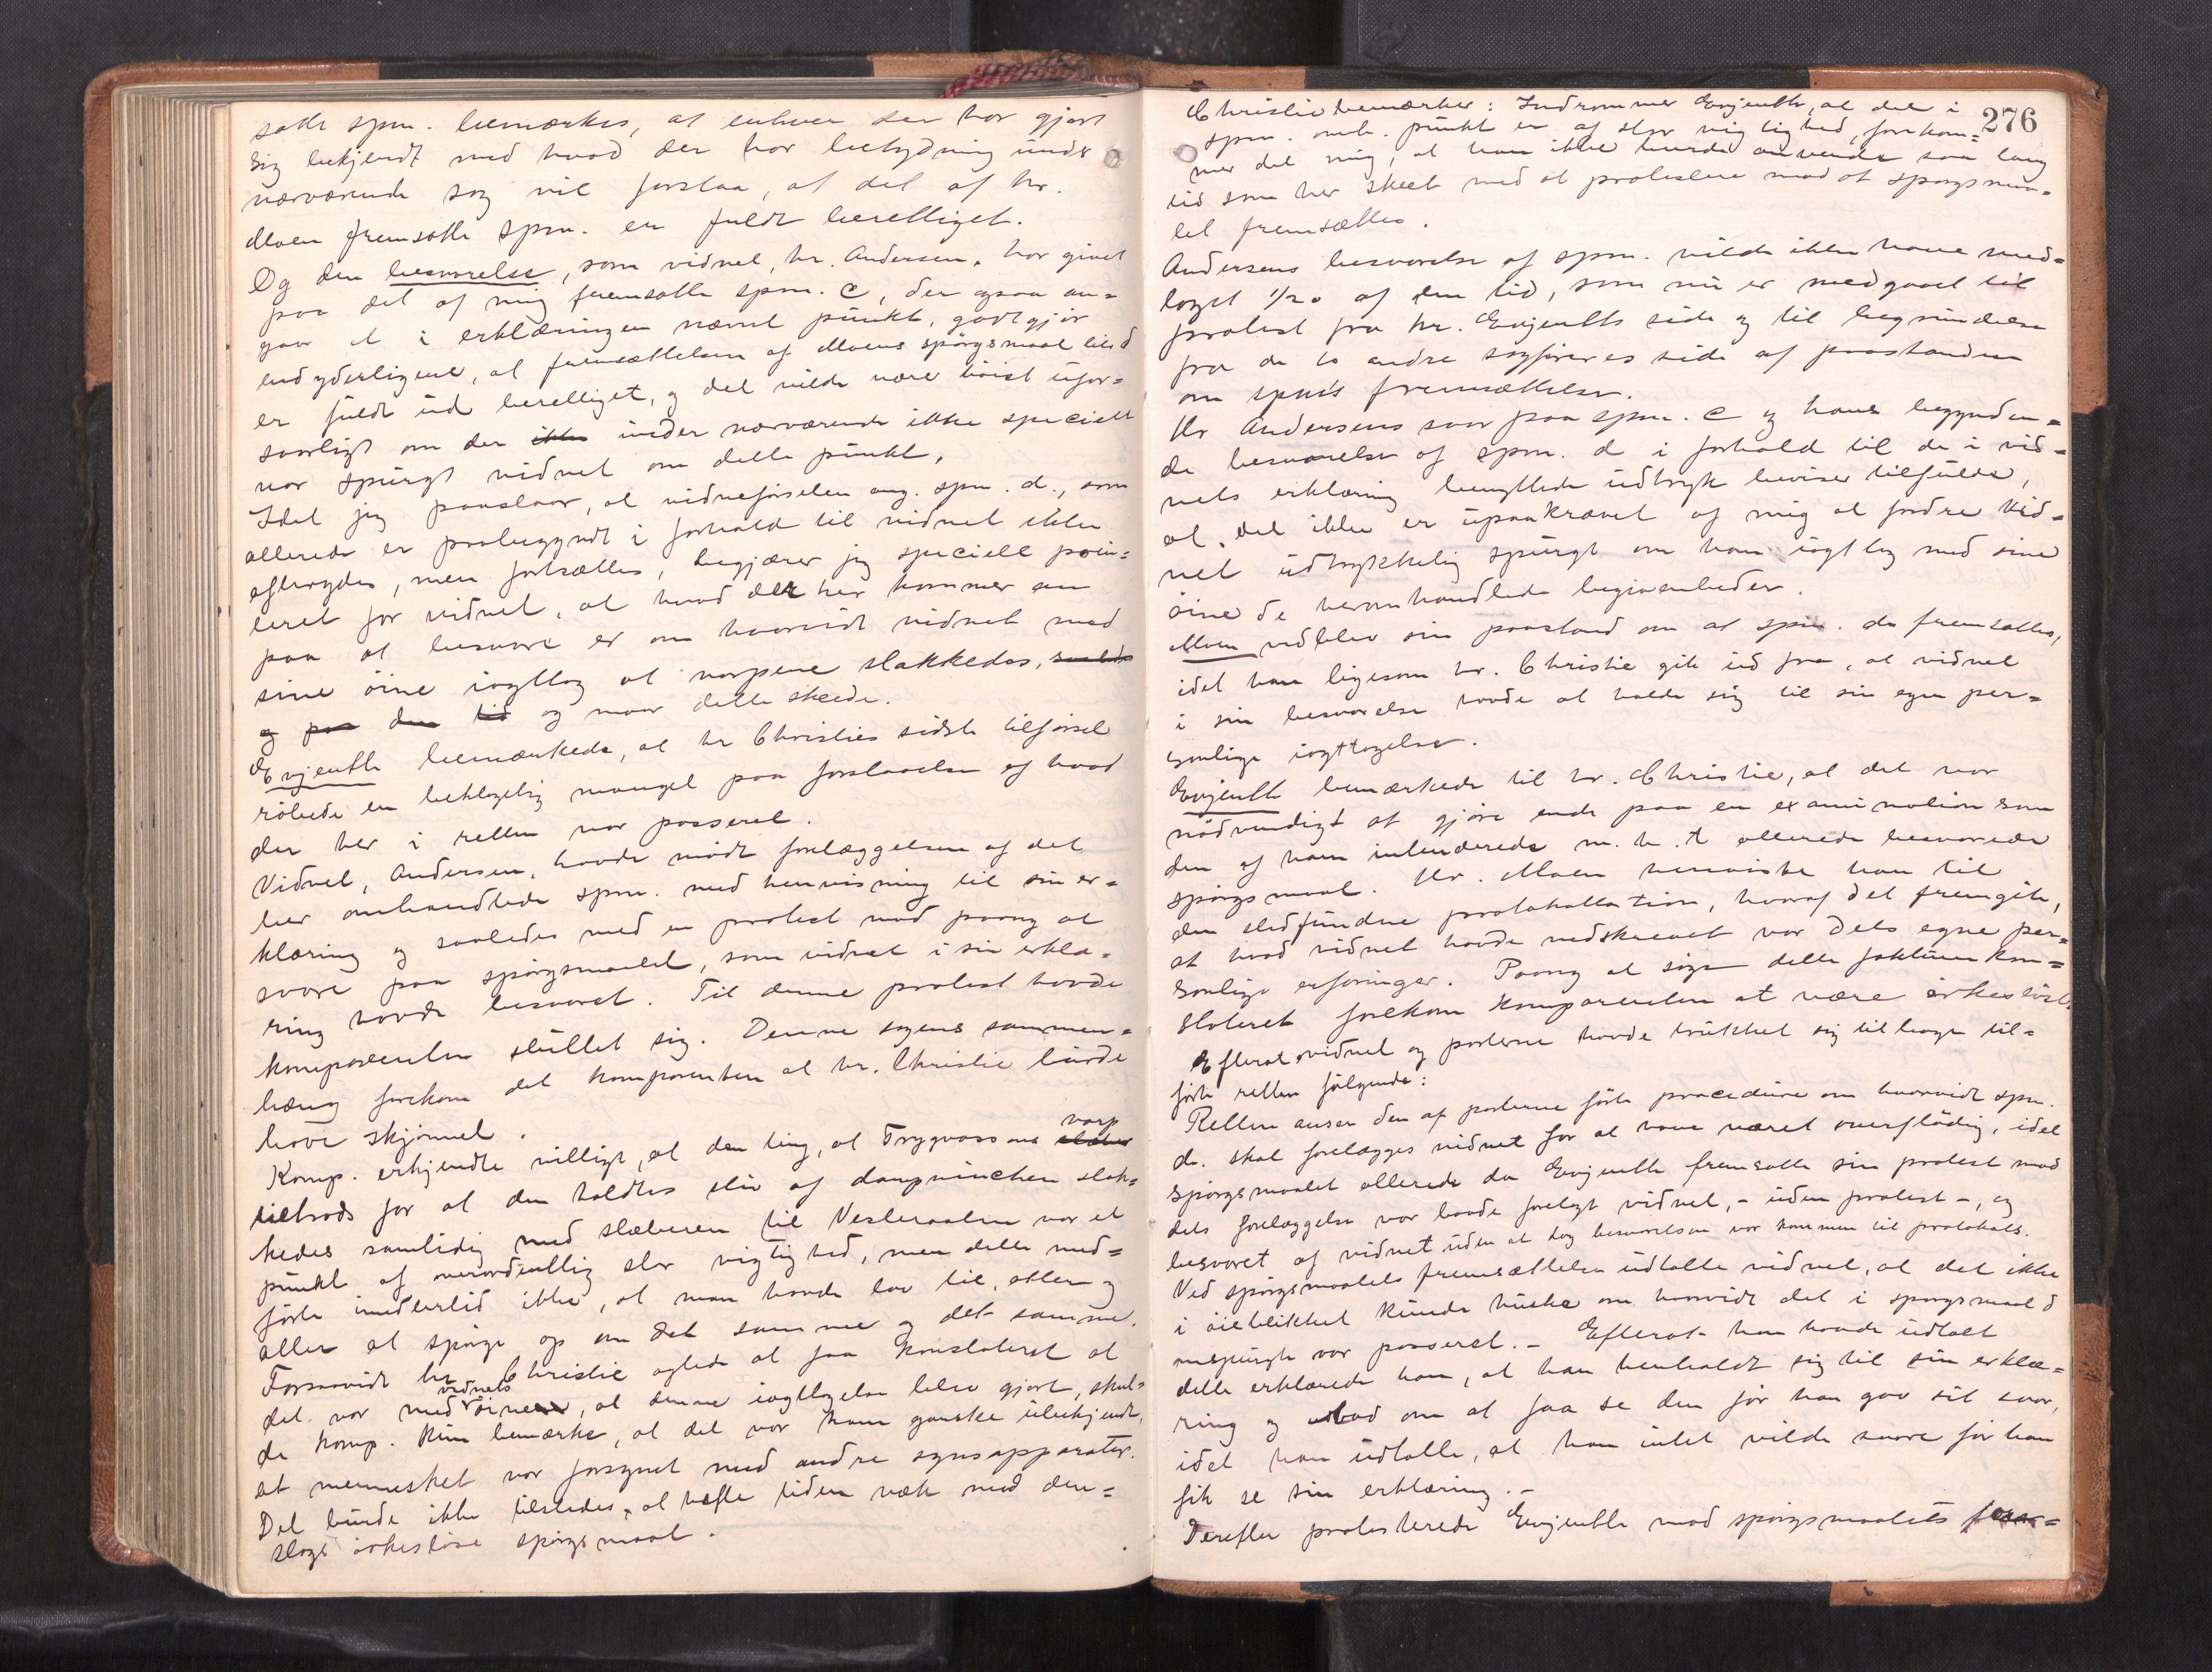 satte spm. bemærkes, at enhver der har gjort
sig bekjendt med hvad der har betydning under
nærværende sag vil forstaa, at det af hr.
Moen fremsatte spm. er fuldt berettiget.
Og den besvarelse, som vidnet, hr. Andersen, har givet
paa det af mig fremsatte spm. c, der ogsaa an=
gaar et i erklæringen nævnt punkt, godtgjør
endyderligere, at fremsættelsen af Moens spørgsmaal litr d
er fuldt ud berettiget, og det vilde være høist ufor=
svarligt om der ikke under nærværende ikke specielt
var spurgt vidnet om dette punkt.
Idet jeg paastaar, at vidneførselen ang. spm. d., som
allerede er paabegyndt i forhold til vidnet ikke
afbrydes, men fortsættes, begjærer jeg specielt poin=
teret for vidnet, at hvad det her kommer an
paa at besvare er om hvorvidt vidnet med
sine øine iagttog at varpene slakkedes,
og paa den tid og naar dette skeede.
Evjenth bemærkede, at hr Christies sidste tilførsel
røbede en beklagelig mangel paa forstaaelse af hvad
der her i retten var passeret.
Vidnet, Andersen, havde mødt forelæggelsen af det
her omhandlede spm. med henvisning til sin er=
klæring og saaledes med en protest mod paany at
svare paa spørgsmaalet, som vidnet i sin erklæ=
ring havde besvaret. Til denne protest havde
komparenten sluttet sig. Denne sagens sammen=
hæng forekom det komparenten at hr. Christie burde
have skjønnet.
Komp. erkjendte villigt, at den ting, at Trygvasons varp
tiltrods for at den holdtes stiv af dampvinchen slak=
kedes samtidig med slæberen til Vesteraalen var et
punkt af overordentlig stor vigtighed, men dette med=
førte imidlertid ikke, at man havde lov til, atter og
atter at spørge op om det samme og det samme.
Forsaavidt hr Christie agtede at faa konstateret at
det var med vidnets øine, at denne iagttagelse blev gjort, skul=
de komp. kun bemærke, at det var ham ganske ubekjendt,
at mennesket var forsynet med andre synsapparater.
Det burde ikke tilstedes, at hefte tiden væk med den=
slags ørkesløse spørgsmaal.
276
Christie bemærker: Indrømmer Evjenth, at det i
spm. omh. punkt er af stor vigtighed, forekom=
mer det mig, at han ikke burde anvende saa lang
tid som her skeet med at protestere mod at spørgsmaa=
let fremsættes.
Andersens besvarelse af spm. vilde ikke have med=
taget 1/20 af den tid, som nu er medgaaet til
protest fra hr. Evjenths side og til begrundelse
fra de to andre sagføreres side af paastanden
om spm's fremsættelse.
Hr Andersens svar paa spm. c og hans begynden=
de besvarelse af spm. d i forhold til de i vid=
nets erklæring benyttede udtryk beviser tilfulde,
at det ikke er upaakrævet af mig at fordre vid=
net udtrykkelig spurgt om han iagttog med sine
øine de heromhandlede begivenheder.
Moen vedblev sin paastand om at spm. d. fremsattes,
idet han ligesom hr. Christie gik ud fra, at vidnet
i sin besvarelse havde at holde sig til sin egen per=
sonlige iagttagelse.
Evjenth bemærkede til hr. Christie, at det var
nødvendigt at gjøre ende paa en examination som
den af ham intenderede m. h. t allerede besvarede
spørgsmaal. Hr. Moen henviste han til
den stedfundne protokollation, hvoraf det fremgik,
at hvad vidnet havde nedskrevet var dets egne per=
sonlige erfaringer. Paany at søge dette faktum kon=
stateret forekom komparenten at være ørkesløst.
Efterat vidnet og parterne havde trukket sig tilbage til=
førte retten følgende:
Retten anser den af parterne førte procedure om hvorvidt spm.
d. skal forelægges vidnet for at have været overflødig, idet
spørgsmaalet allerede da Evjenth fremsatte sin protest mod
dets forelæggelse var baade forelagt vidnet, - uden protest -, og
besvaret af vidnet uden at dog besvarelsen var kommen til protokols.
Ved spørgsmaalets fremsættelse udtalte vidnet, at det ikke
i øieblikket kunde huske om hvorvidt det i spørgsmaal d
omspurgte var passeret. - Efterat han havde udtalt
dette erklærede han, at han henholdt sig til sin erklæ=
ring og bad om at faa se den før han gav sit svar,
idet han udtalte, at han intet vilde svare før han
fik se sin erklæring. -
Derefter protesterede Evjenth mod spørgsmaalets